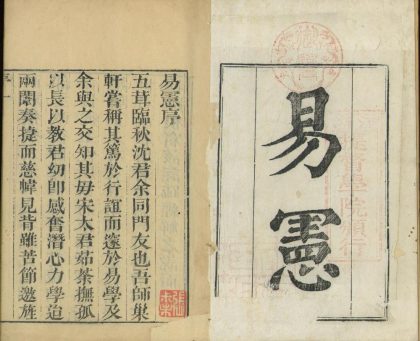 易憲
易憲序
五茸臨秋沈君余同門友也吾師巢
軒嘗稱其篤於行誼而邃於易學及
余與之交知其毋宋太君茹荼撫孤
以長以教君幼即感奮潛心力學迨
兩闈奏捷而慈幃見背雖苦節邀旌